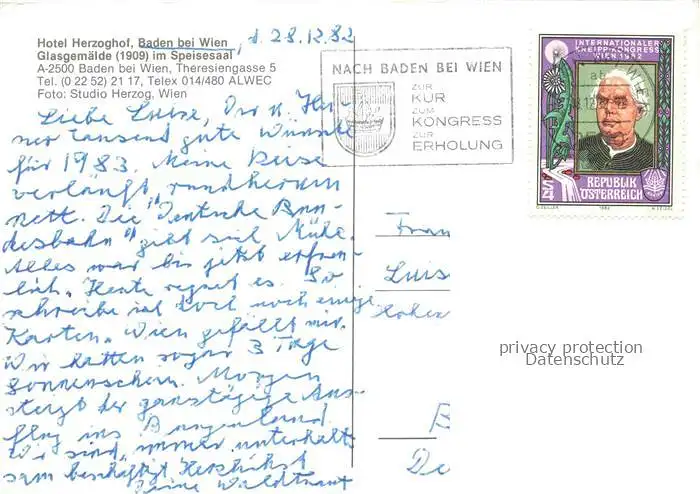 Hotel Herzoghof, Baden bei Wien, d. 28.12.82
Glasgemälde (1909) im Speisesaal
A-2500 Baden bei Wien, Theresiengasse 5
Tel. (0 22 52) 21 17, Telex 014/480 ALWEC
Foto: Studio Herzog, Wien
Liebe Luise, Dir u. Hei-
ner tausend gute Wünsche
für 1983. Meine Reise
verläuft rundherum
nett. Die "Deutsche Bun-
desbahn" gibt sich Mühe.
Alles war bis jetzt erfreu-
lich. Heute regnet es. So
schreibe ich doch noch einige
Karten. Wien gefällt mir.
Wir hatten sogar 3 Tage
Sonnenschein. Morgen
steigt der ganztägige Aus-
flug ins Burgenland.
Wir sind immer unterhalt-
sam beschäftigt. Herzlichst
Deine Waldtraut
NACH BADEN BEI WIEN
ZUR
KUR
ZUM
KONGRESS
ZUR
ERHOLUNG
INTERNATIONALER
KNEIPP-KONGRESS
WIEN 1982
REPUBLIK
ÖSTERREICH
S4
1982
Frau
Luis
Hohen
B
De
privacy protection
Datenschutz